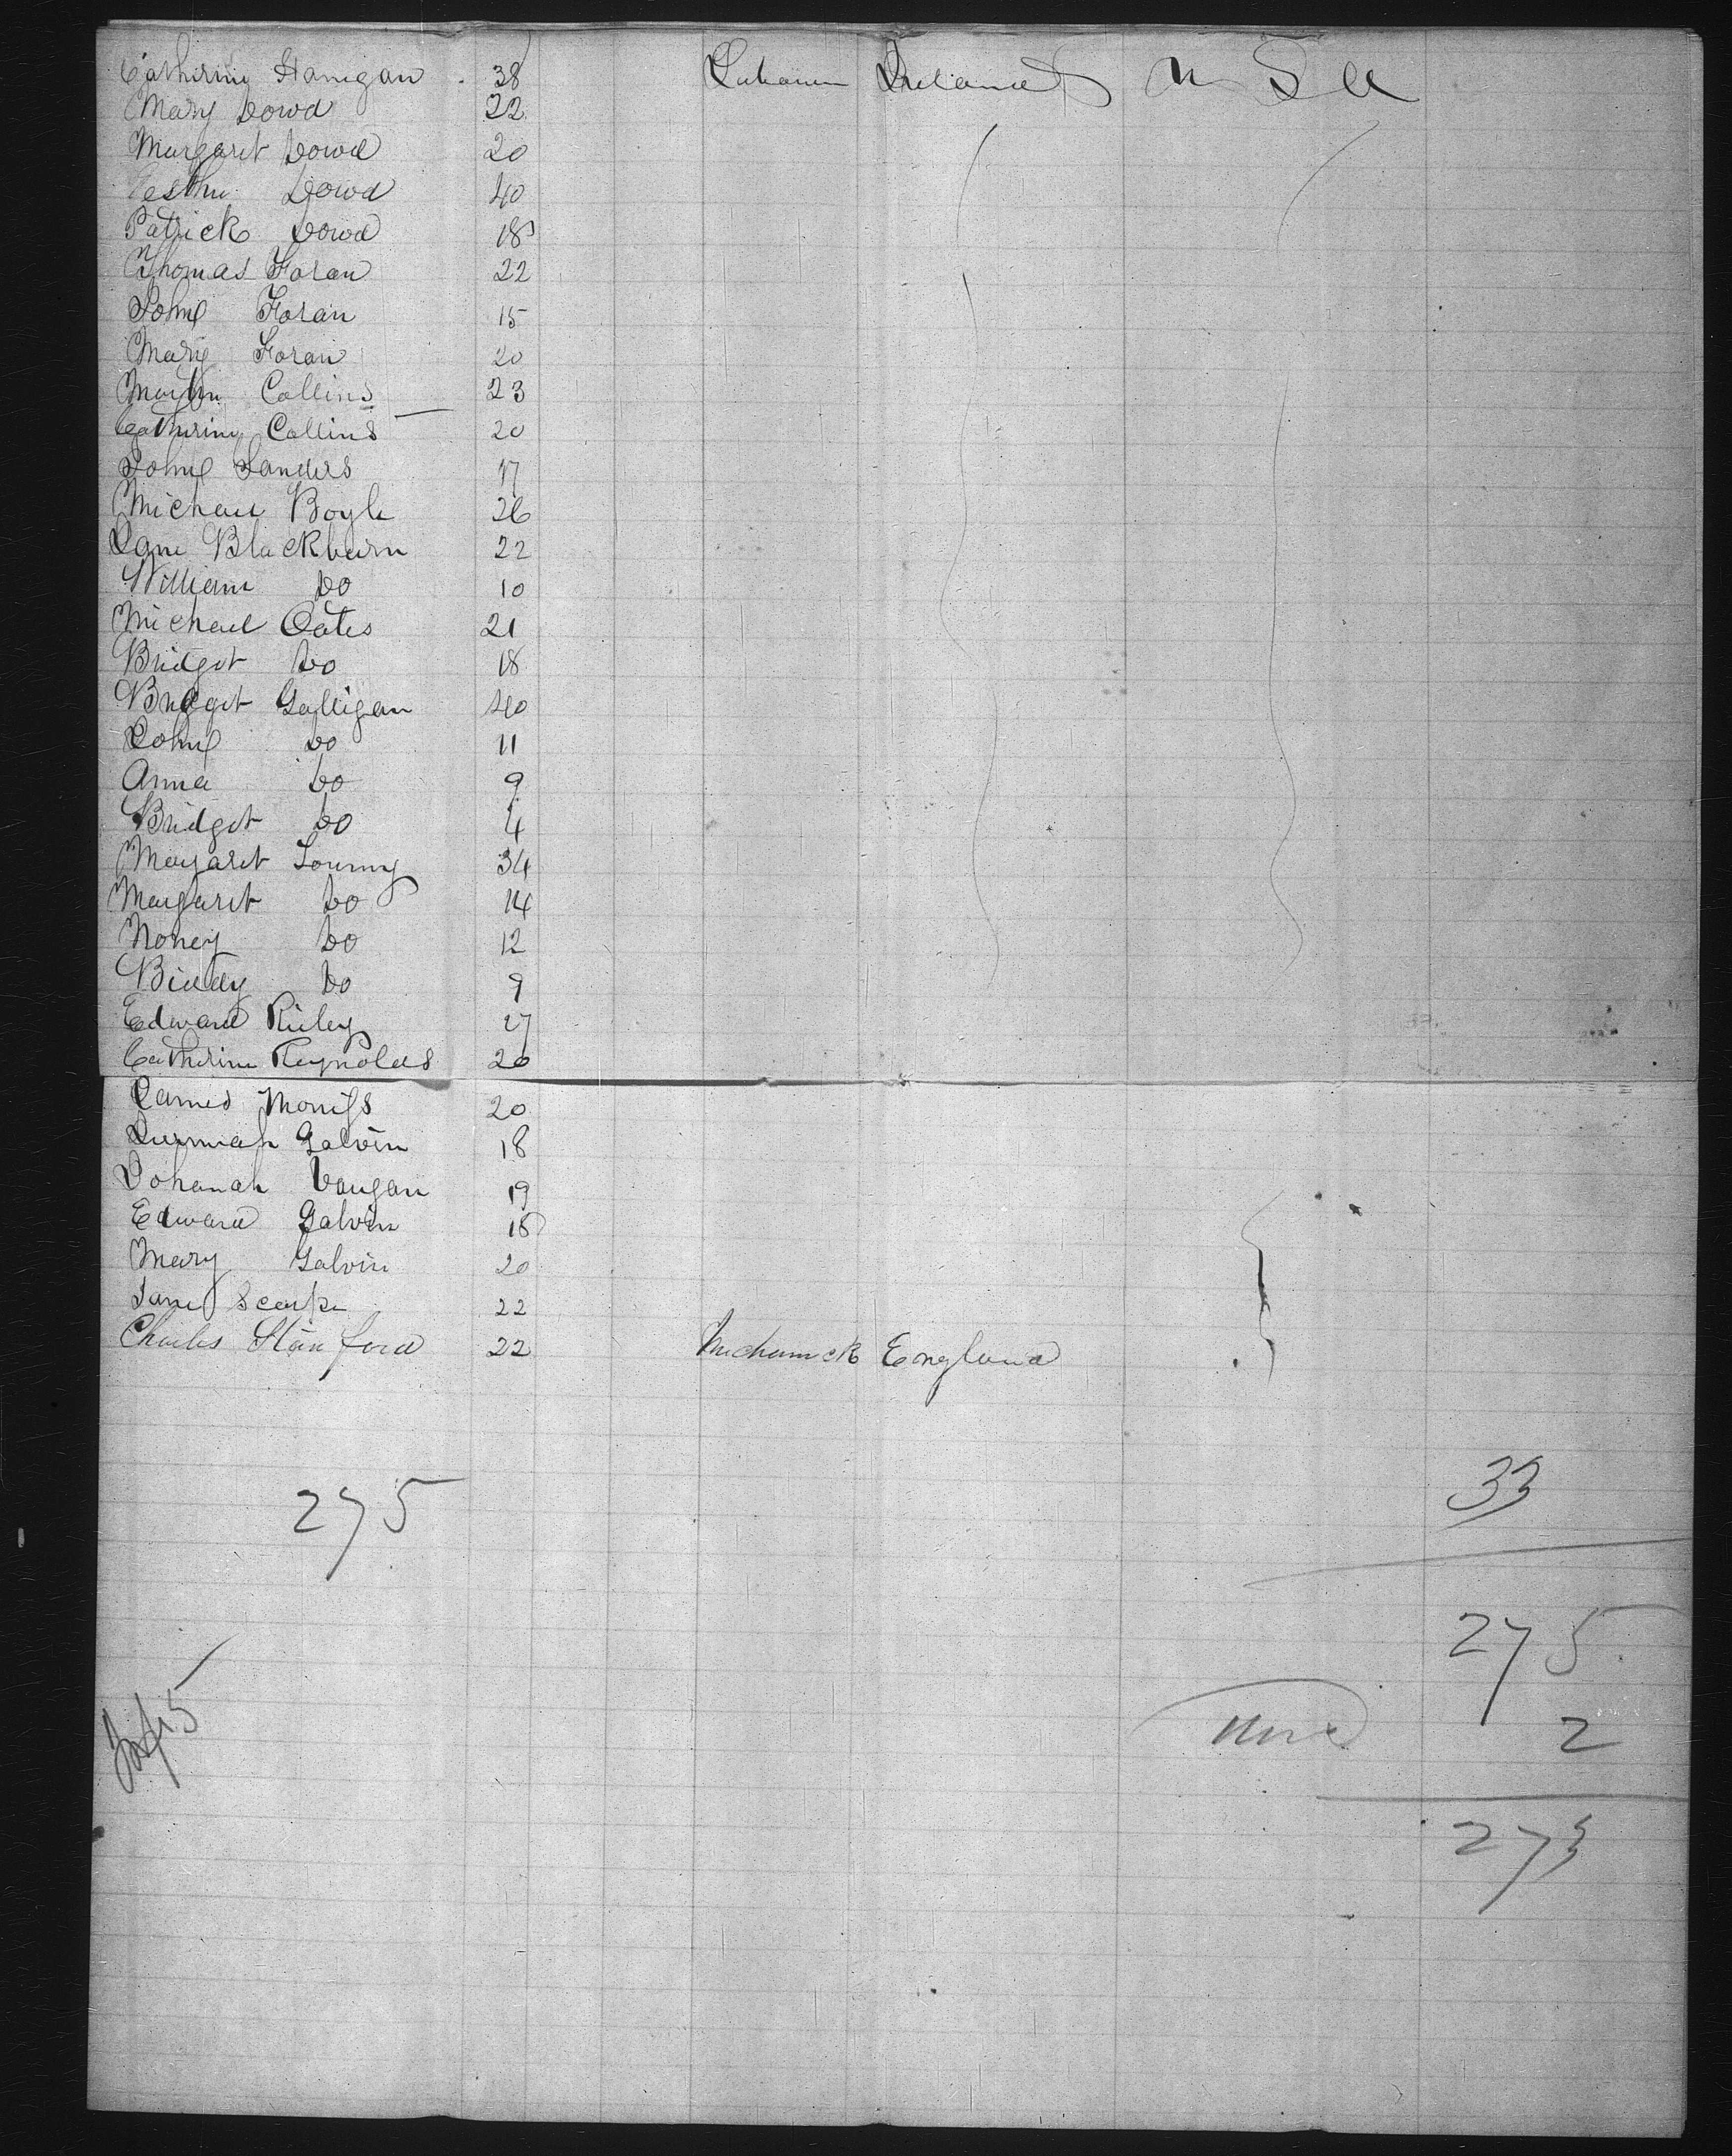 Catherine Hanigan 38 Labourer Ireland U S A
Mary Dowd 22
Margaret Dowd 20
Dowd 40
Patrick Dowd 18
Thomas Foran 22
John Foran 15
Mary Foran 20
Martin Collins 23
Catherine Collins 20
John Sanders 17
Michael Boyle 26
Jane Blackburn 22
William Do 10
Michael Oates 21
Bridget Do 18
Bridget Galligan 40
John Do 11
Anna Do 9
Bridget Do 4
Margaret 34
Margaret Do 14
Noney Do 12
Biddy Do 9
Edward Riley 27
Catherine Reynolds 20
James 20
Galvin 18
Johanah Vaugan 19
Edward Galvin 18
Mary Galvin 20
Jane 22
Charles Stanford 22 Mechanick England
33
275
275
2
273